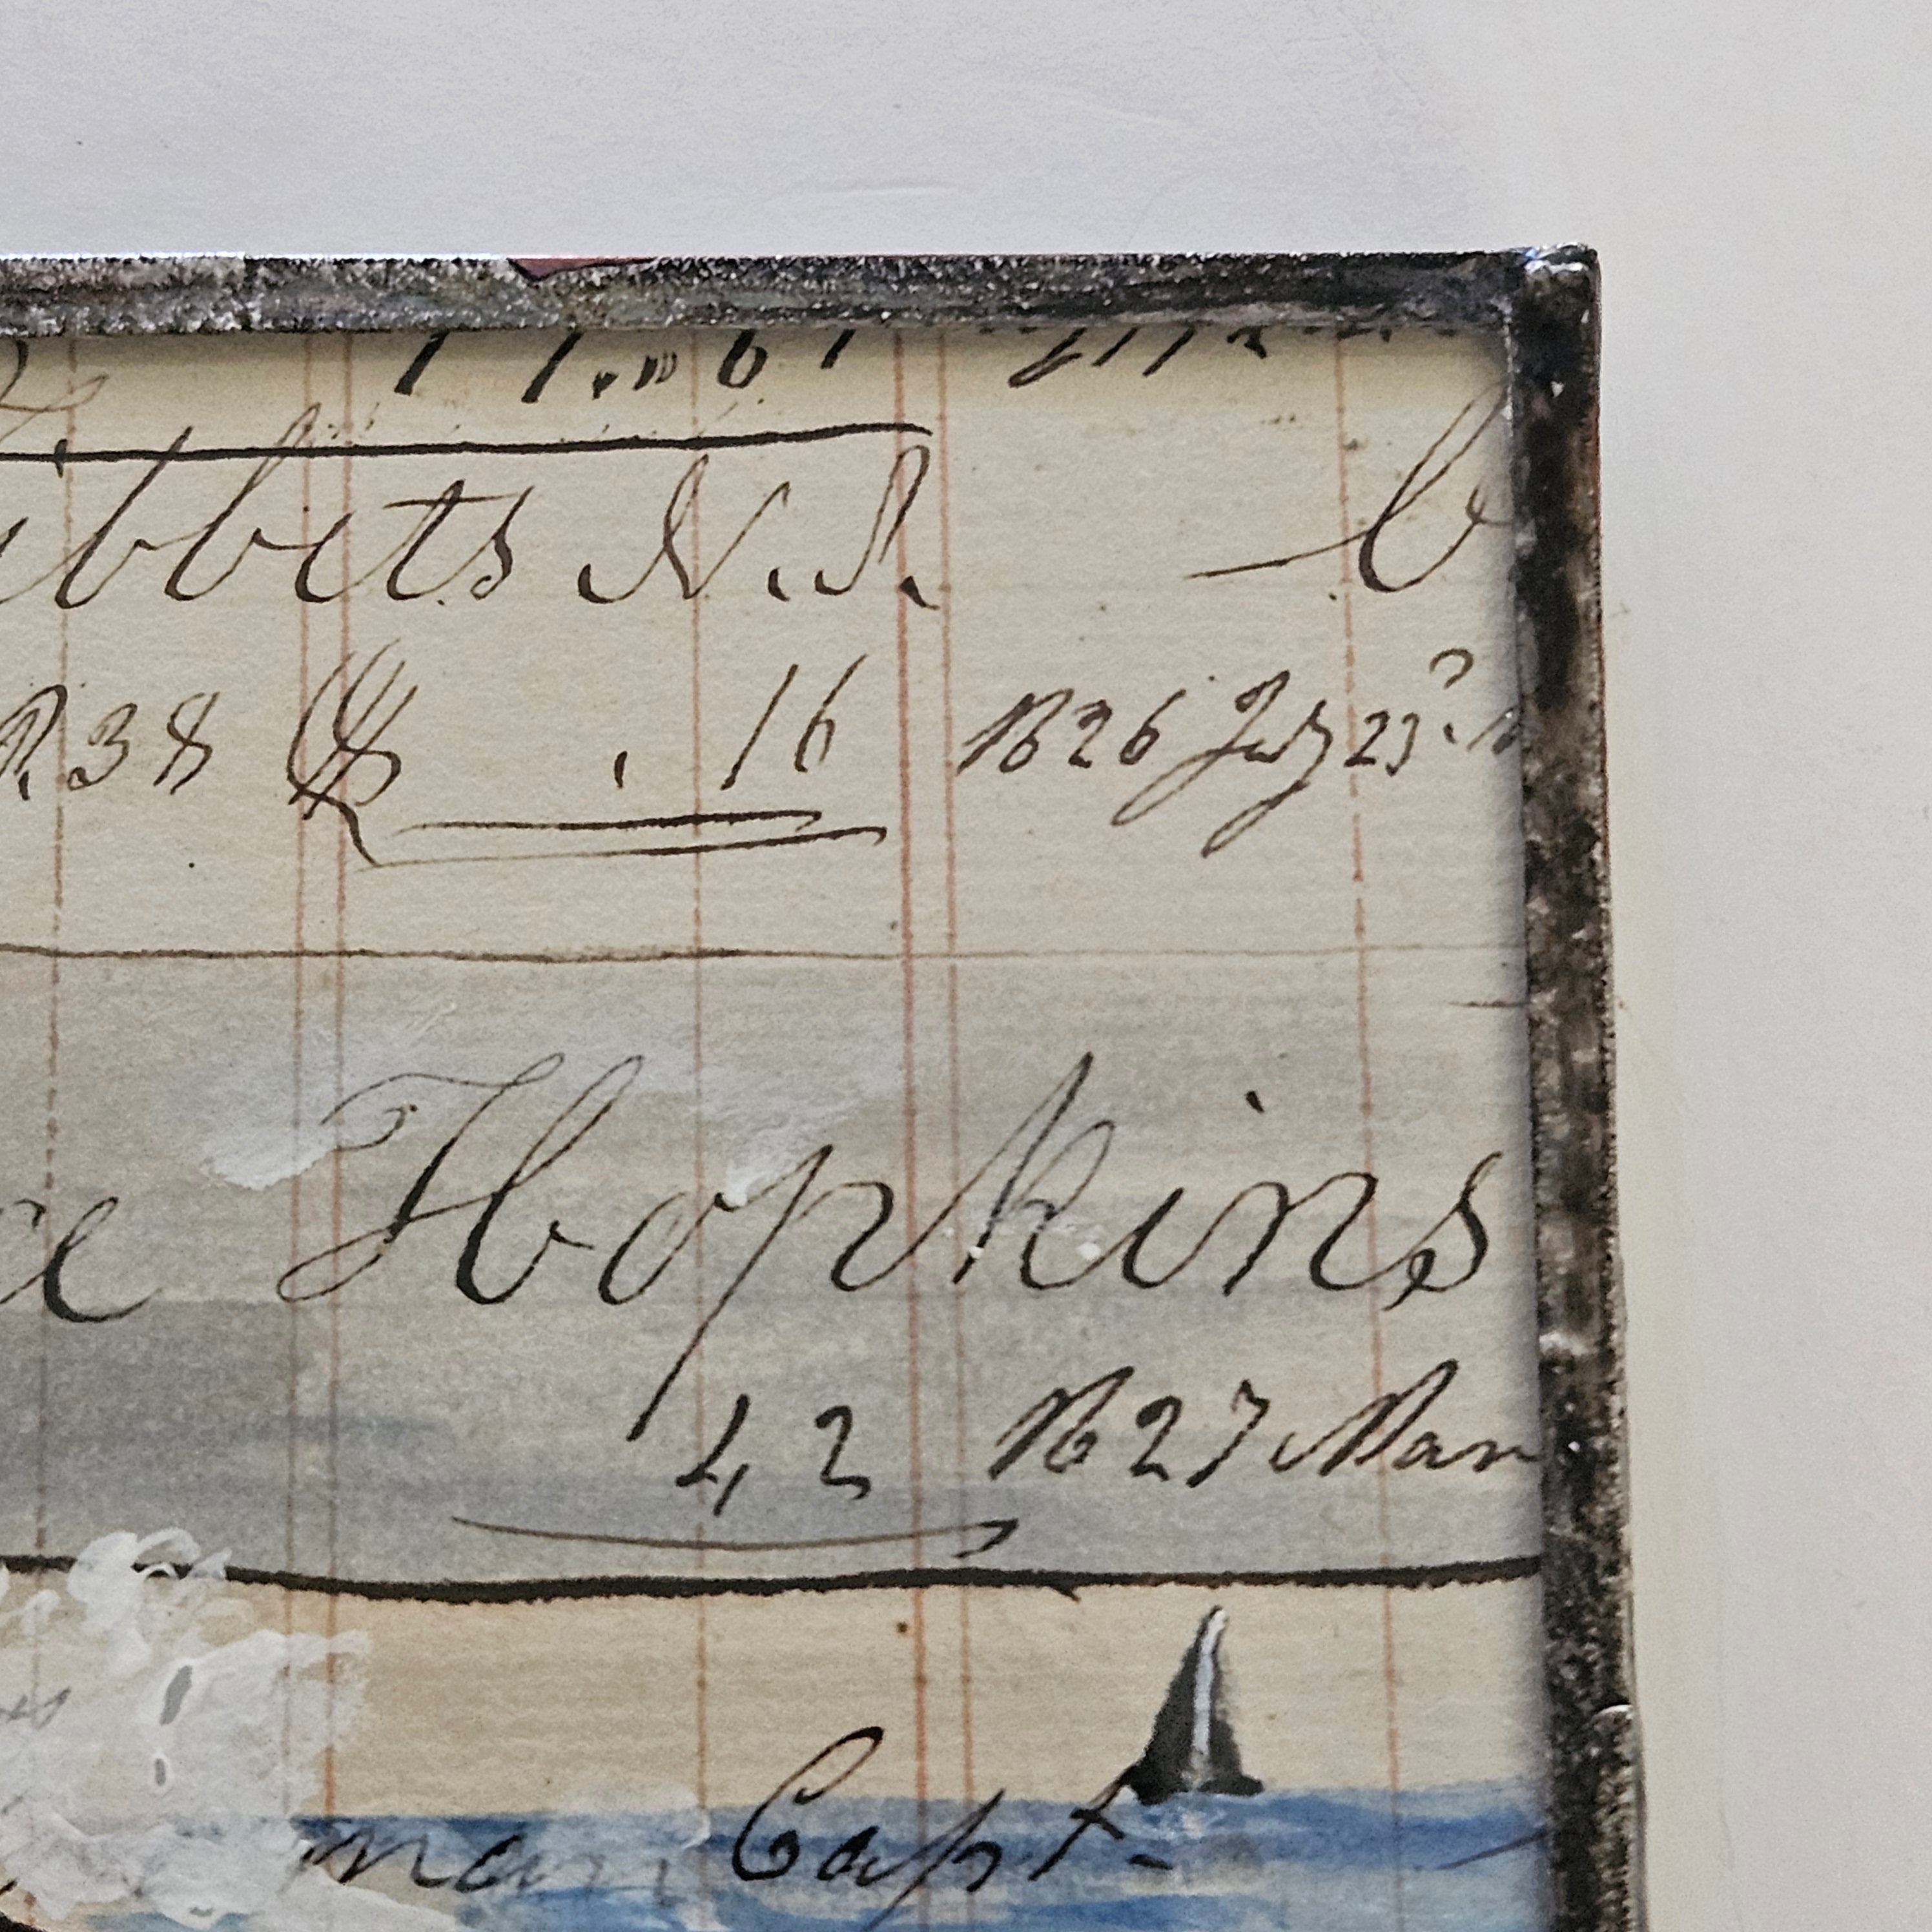 ibbets N. S.
P. 38 $ . 16 1826 July 23
Hopkins
42 1827 Mar
man Capt.